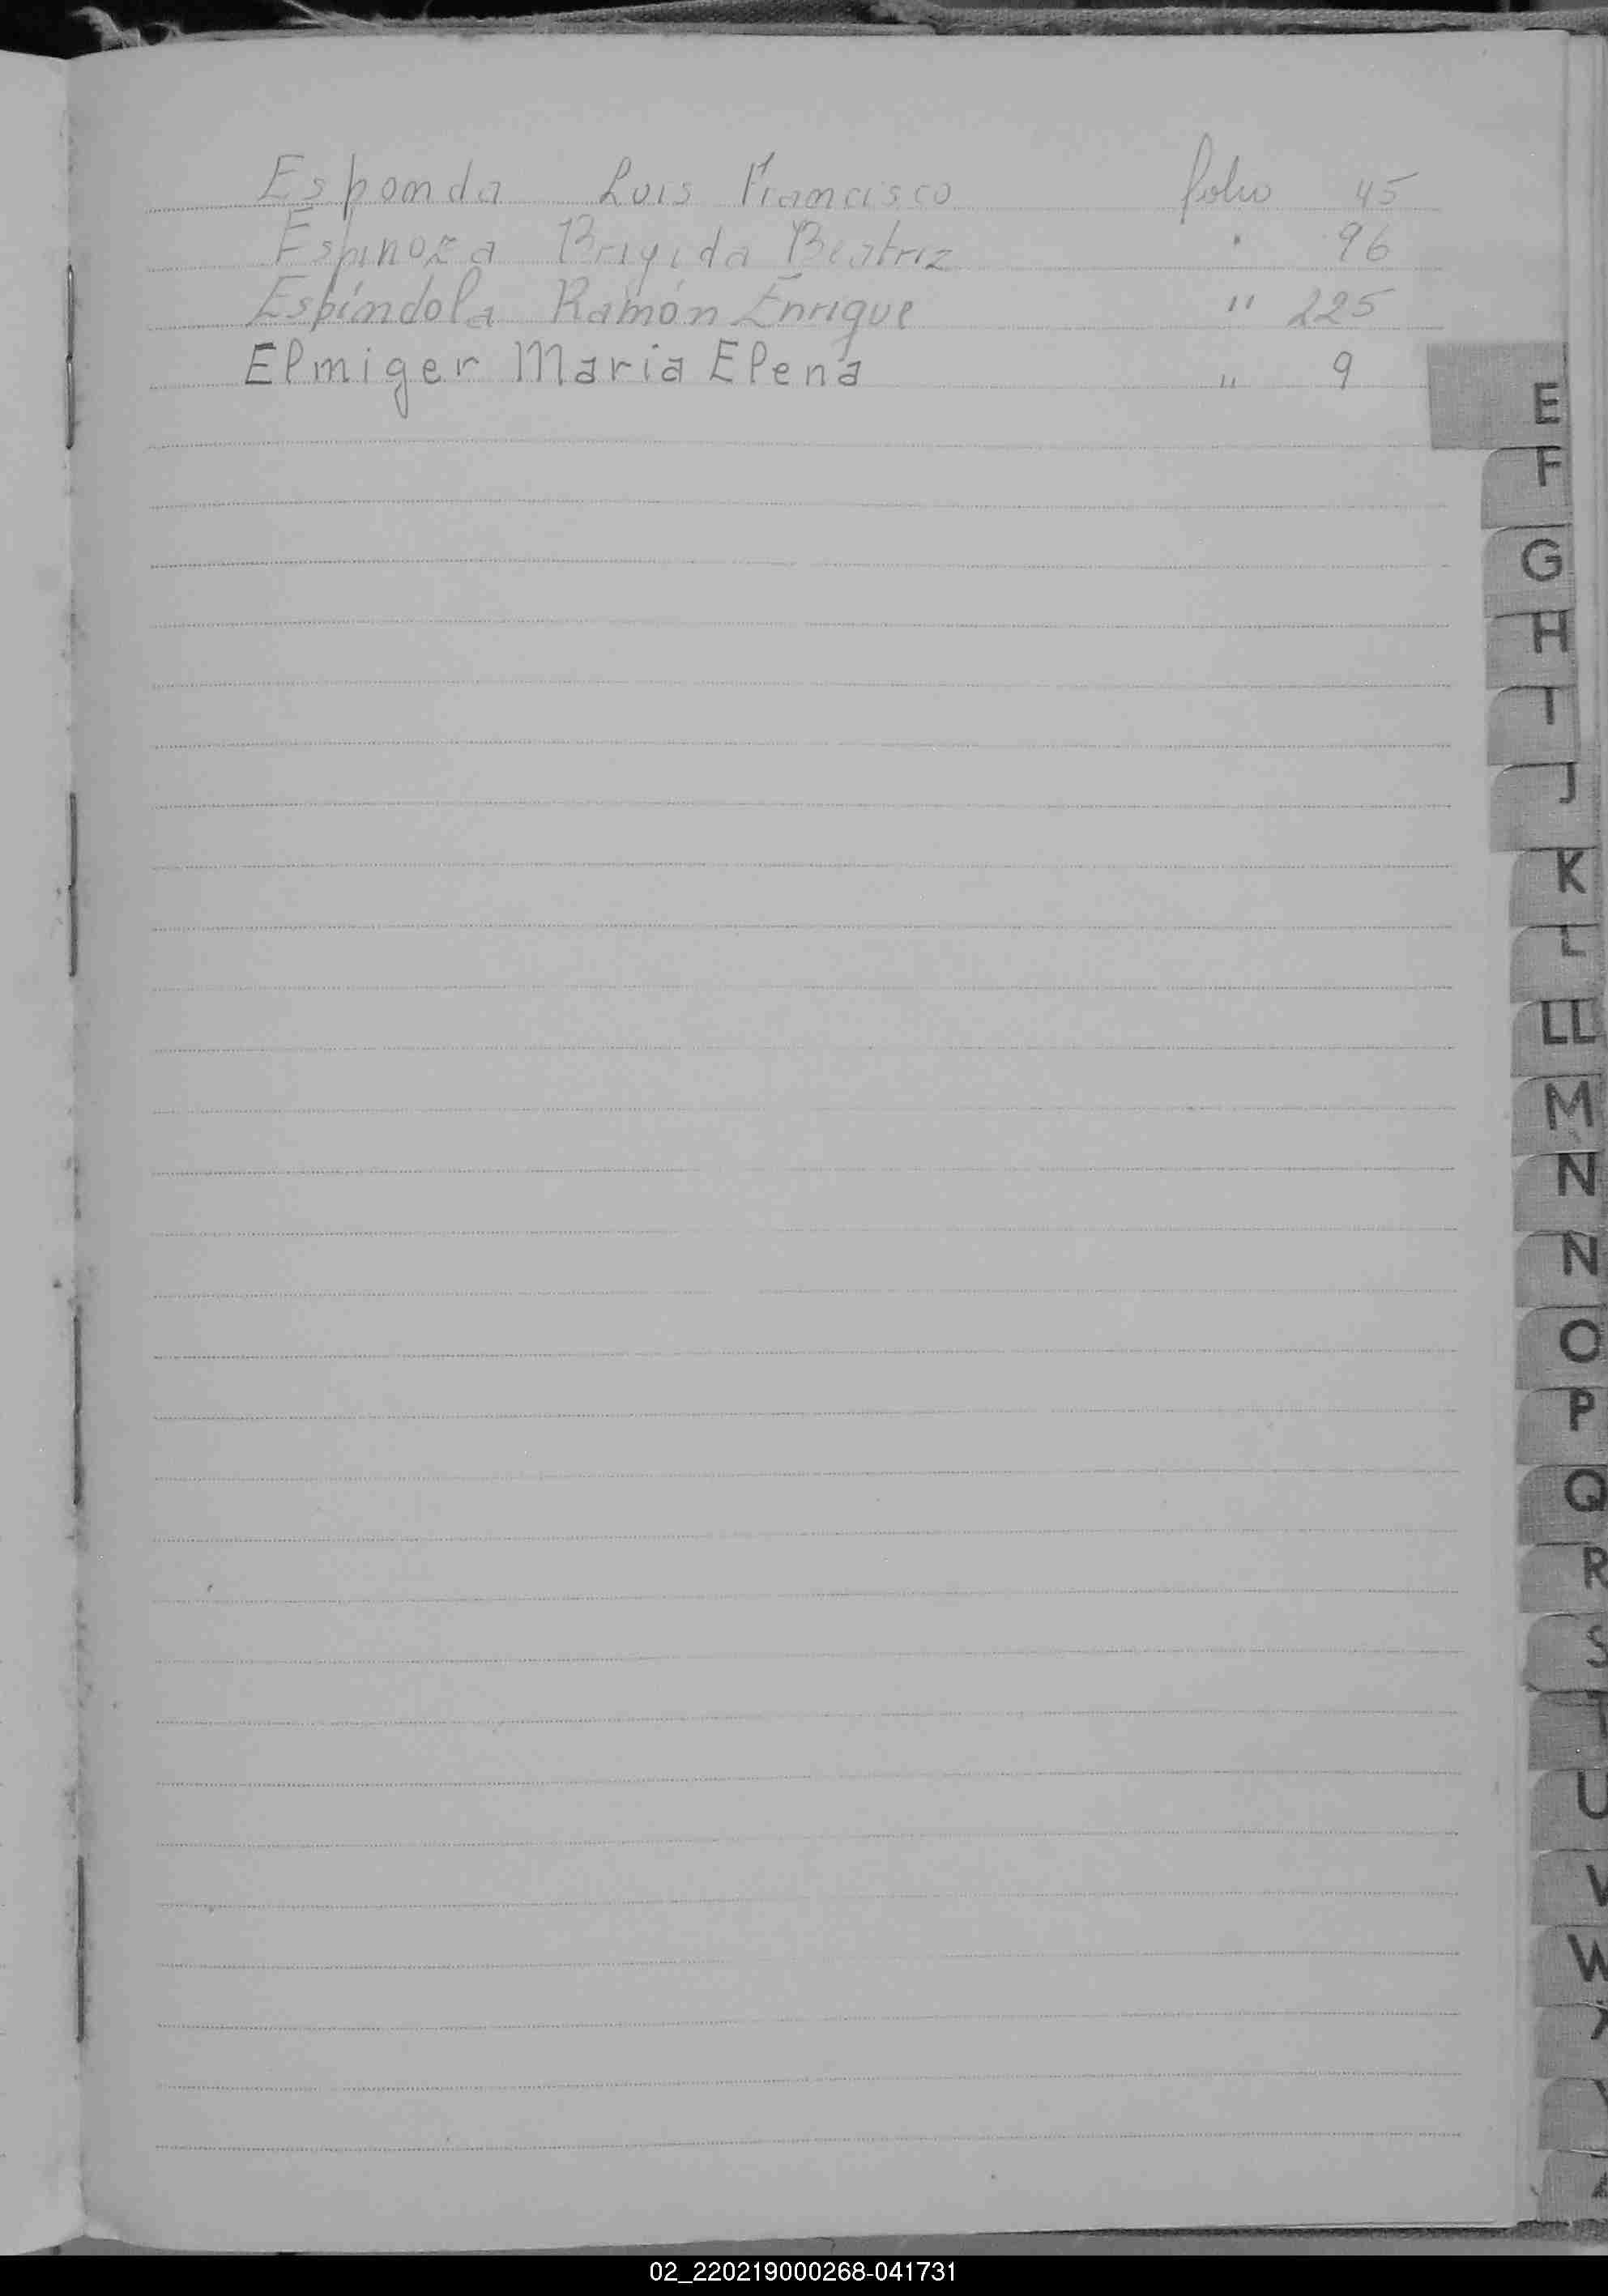 Esponda Luis Francisco folio 45
Espinoza Brigida Beatriz " 96
Espíndola Ramón Enrique " 225
Elmiger Maria Elena " 9
E
F
G
H
I
J
K
L
LL
M
N
N
O
P
Q
R
S
T
U
V
W
X
Y
Z
02_220219000268-041731